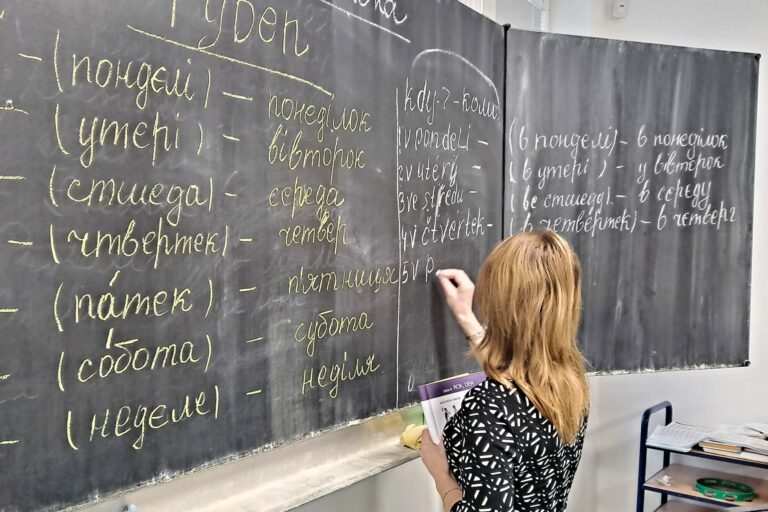 Туден
(пондєлі) - понеділок
(утері) - вівторок
(стшеда) - середа
(чтвертек) - четвер
(па́тек) - п'ятниця
(со́бота) - субота
(неделе) - неділя
kdy? - коли?
1 v pondělí -
2 v úterý -
3 ve středu -
4 v čtvrtek -
5 v p
(в понделі) - в понеділок
(в утері) - у вівторок
(ве стшеду) - в середу
(в чтвертек) - в четвер
ROK, DEN